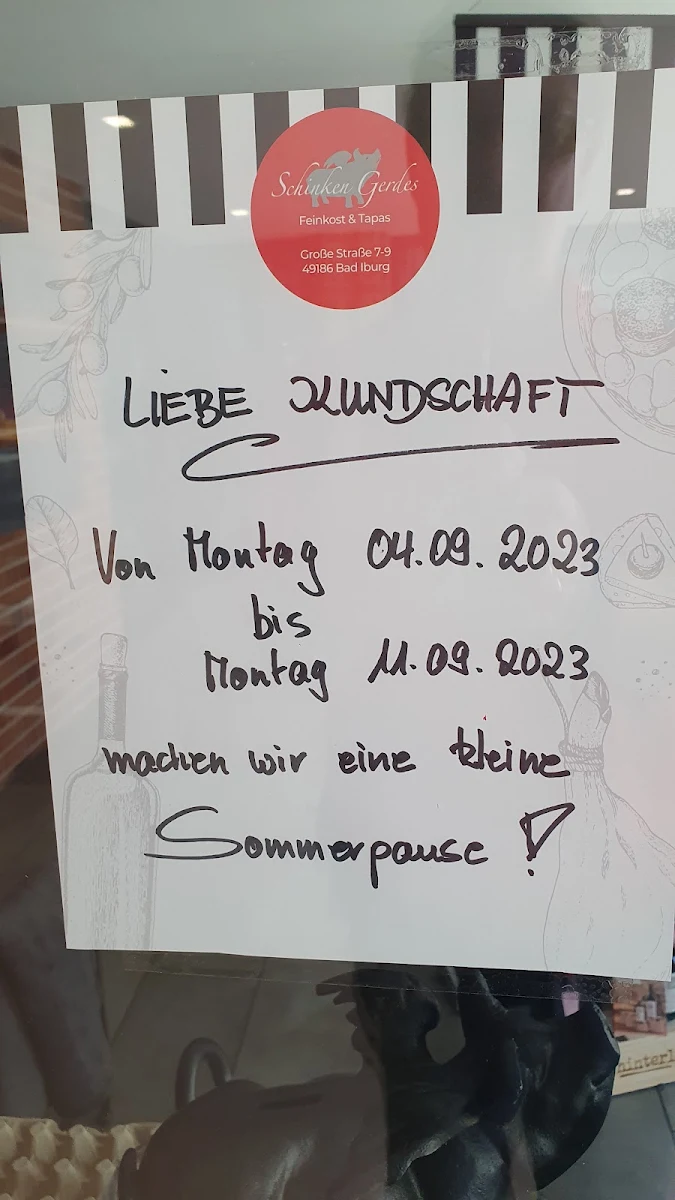 Schinken Gerdes
Feinkost & Tapas
Große Straße 7-9
49186 Bad Iburg
LIEBE KUNDSCHAFT
Von Montag 04.09.2023
bis
Montag 11.09.2023
machen wir eine kleine
Sommerpause !